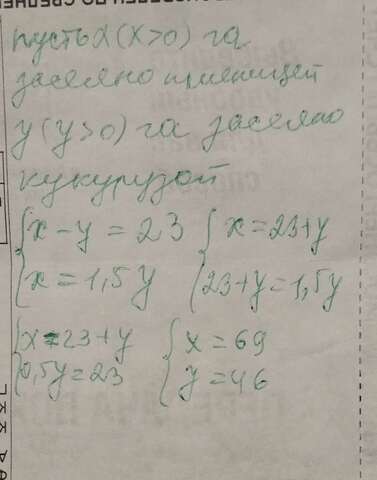 пусть x (x>0) га
засеяно пшеницей
y (y>0) га засеяно
кукурузой
{x-y=23 {x=23+y
{x=1,5y {23+y=1,5y
{x=23+y {x=69
{0,5y=23 {y=46